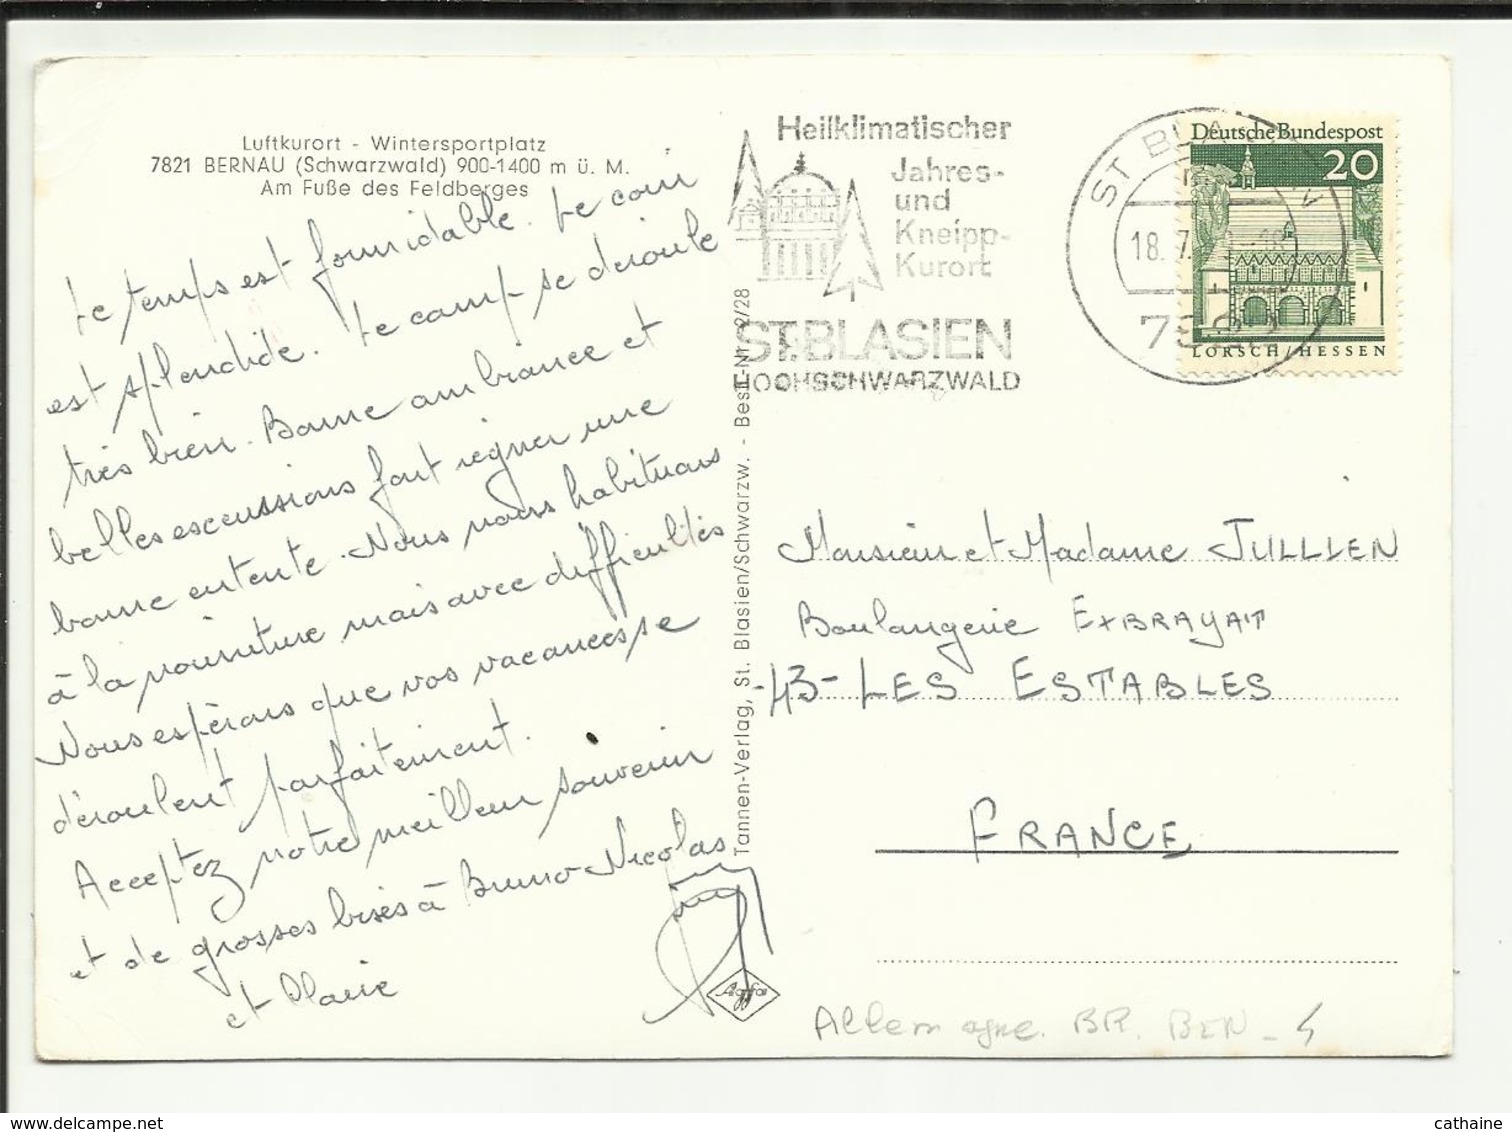 Luftkurort - Wintersportplatz
7821 BERNAU (Schwarzwald) 900-1400 m ü. M.
Am Fuße des Feldberges
Le temps est formidable. Le coin
est splendide. Le camp se déroule
très bien. Bonne ambiance et
belles escurssions font régner une
bonne entente. Nous nous habituons
à la nourriture mais avec difficultés
Nous espérons que vos vacances se
déroulent parfaitement.
Acceptez notre meilleur souvenir
et de grosses bises à Bruno - Nicolas
et Claire
Tannen-Verlag, St. Blasien/Schwarzw. - Best.-Nr. 9/28
Agfa
Heilklimatischer
Jahres-
und
Kneipp-
Kurort
ST. BLASIEN
HOCHSCHWARZWALD
ST BLA
18. 7.
Deutsche Bundespost
20
LORSCH/HESSEN
Monsieur et Madame JULLIEN
Boulangerie EXBRAYAT
-43- LES ESTABLES
FRANCE
Allemagne. BR. BEN - 4
cathaine